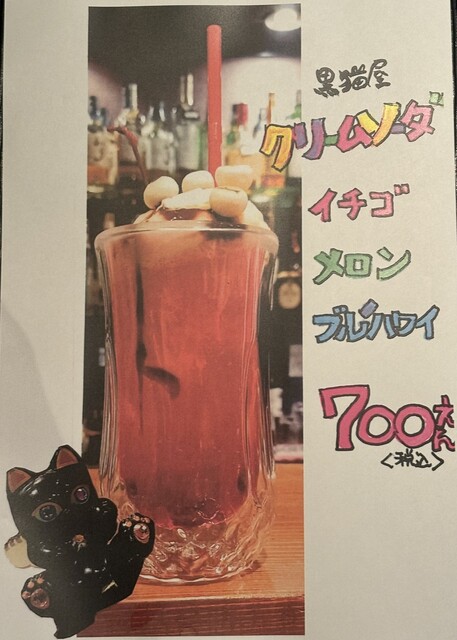 黒猫屋
クリームソーダ
イチゴ
メロン
ブルーハワイ
700えん
<税込>